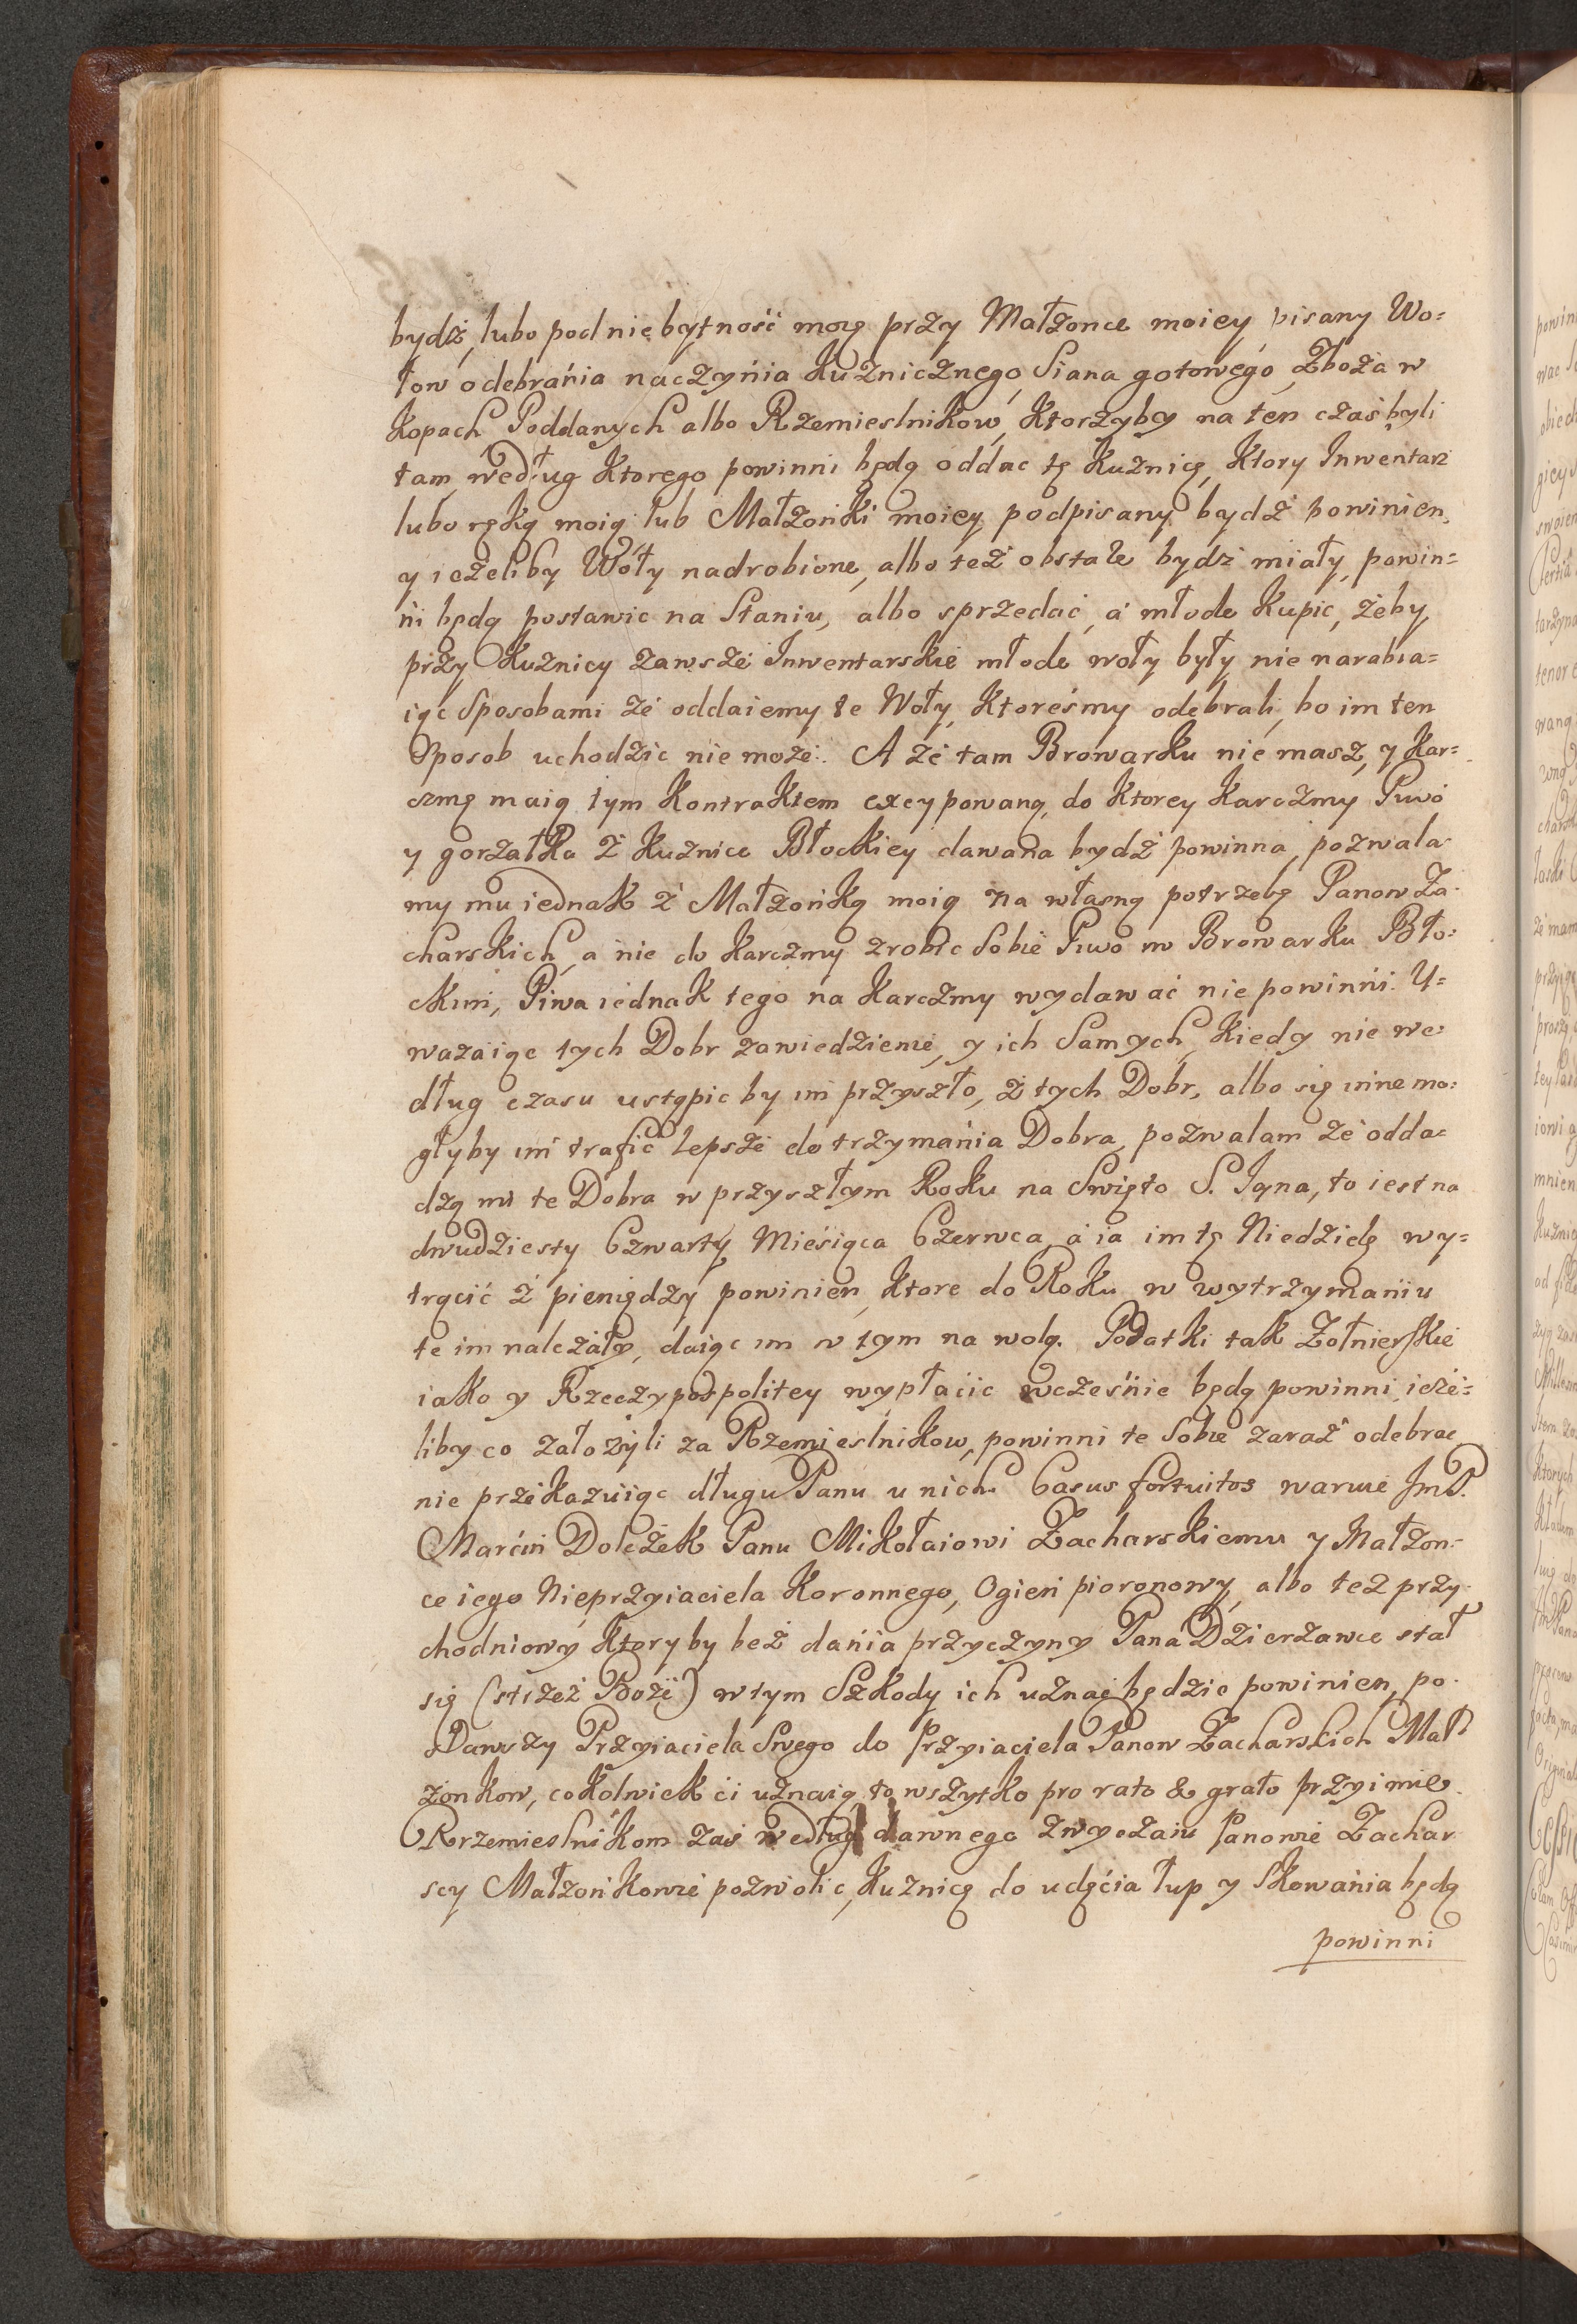 bydź, lubo pod niebytność moię przy Małzonce moiey pisany Wo=
łow odebrańia naczyńia Kuźnicznego, Siana gotowego, Zboża w
Kopach Poddanych albo Rzemieslnikow, Ktorzyby na ten czas byli
tam, według Ktorego powinni będą oddac tę Kuznicę, Ktory Inwentarz
lubo ręką moią lub Małżonki moiey podpisany bydź powinien,
y ieżeliby Woły nadrobione, albo też obstałe bydz miały, powin=
ni będą postawic na Staniu, albo sprzedać, a młode Kupic, żeby
przy Kuznicy zawsze Inwentarskie młode woły były nie narabia=
iąc Sposobami że oddaiemy te Woły, Ktoreśmy odebrali, bo im ten
Sposob uchodzic nie może. A że tam Browarku nie masz, y Kar=
czmę maią tym Kontraktem excypowaną, do Ktorey Karczmy Piwo
y gorzałka z Kuznice Błockiey dawana bydź powinna, pozwala
my mu iednak z Małżonką moią na własną potrzebę Panow Za=
charskich, a nie do Karczmy zrobic Sobie Piwo w Browarku Bło=
ckim, Piwa iednak tego na Karczmy wydawać nie powinni. U=
wazaiąc tych Dobr zawiedzienie, y ich Samych, Kiedy nie we=
dług czasu ustąpic by im przyszło, z tych Dobr, albo się inne mo=
głyby im trafic lepsze do trzymania Dobra, pozwalam że odda=
dzą mi te Dobra w przyszłym Roku na Swięto S. Iana, to iest na
dwudziesty Czwarty Miesiąca Czerwca, a ia im tę Niedzielę wy=
trącić z pieniędzy powinien, Ktore do Roku w wytrzymaniu
te im należały, daiąc im w tym na wolą. Podatki tak Zołnierskie
iako y Rzeczypospolitey wypłacic wcześnie będą powinni, ieże=
liby co założyli za Rzemieslnikow, powinni te Sobie zaraz odebrac
nie przekazuiąc długu Panu u nich. Casus fortuitos waruie JmP.
Marcin Doleżek Panu Mikołaiowi Zacharskiemu y Małzon=
ce iego Nieprzyiaciela Koronnego, Ogień pioronowy, albo też przy=
chodniowy Ktoryby bez dańia przyczyny Pana Dzierzawce stał
się (strzeż Boże) w tym Szkody ich uznac będzie powinien, po=
Dawszy Przyiaciela Swego do Przyiaciela Panow Zacharskich Mał
zonkow, cokolwiek ci uznaią, to wszytko pro rato & grato przyimie.
Rrzemieslnikom zas według dawnego zwyczaiu Panowie Zachar
scy Małżonkowie pozwolic, Kuznicę do udęćia łup y Skowania będą
powinni